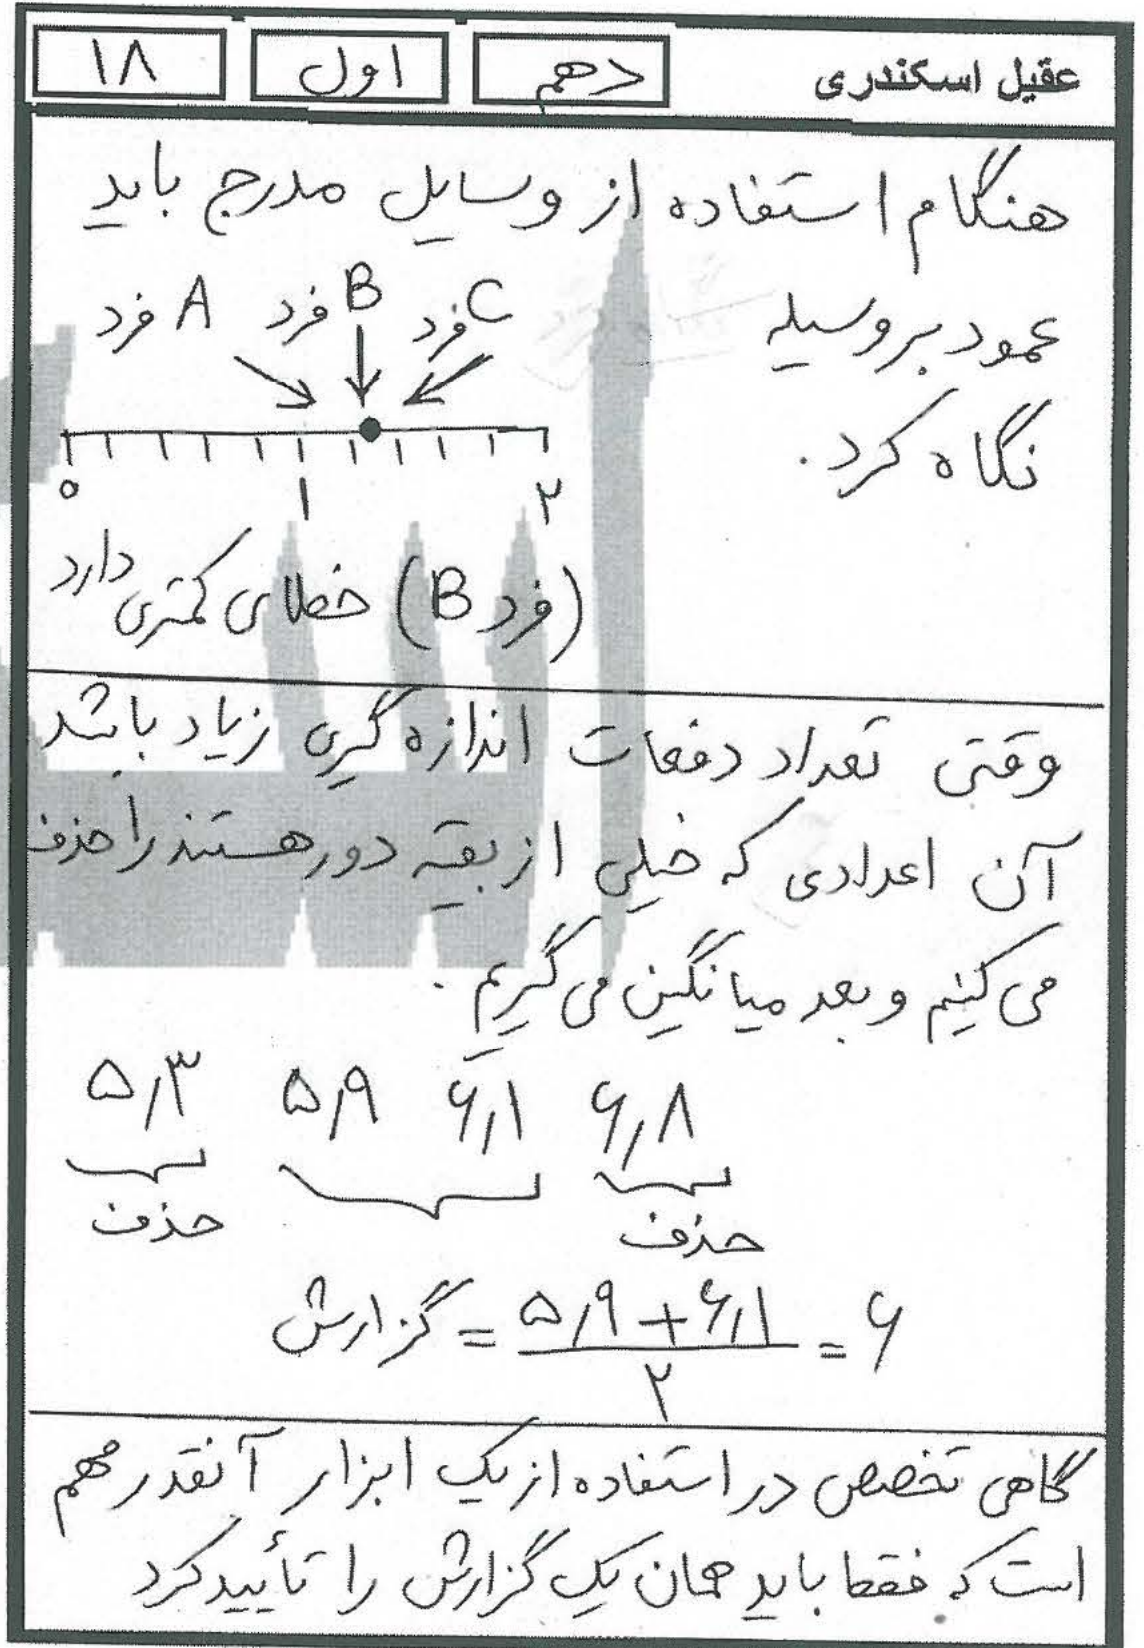 عقیل اسکندری دهم اول ۱۸
هنگام استفاده از وسایل مدرج باید
عمود بر وسیله
نگاه کرد.
فرد A فرد B فرد C
۰ ۱ ۲
(فرد B) خطای کمتری دارد
وقتی تعداد دفعات اندازه گیری زیاد باشد
آن اعدادی که خیلی از بقیه دور هستند را حذف
می کنیم و بعد میانگین می گیریم.
۵٫۳ ۵٫۹ ۶٫۱ ۶٫۸
حذف حذف
گزارش = (۵٫۹ + ۶٫۱) / ۲ = ۶
گاهی تخصص در استفاده از یک ابزار آنقدر مهم
است که فقط باید همان یک گزارش را تأیید کرد